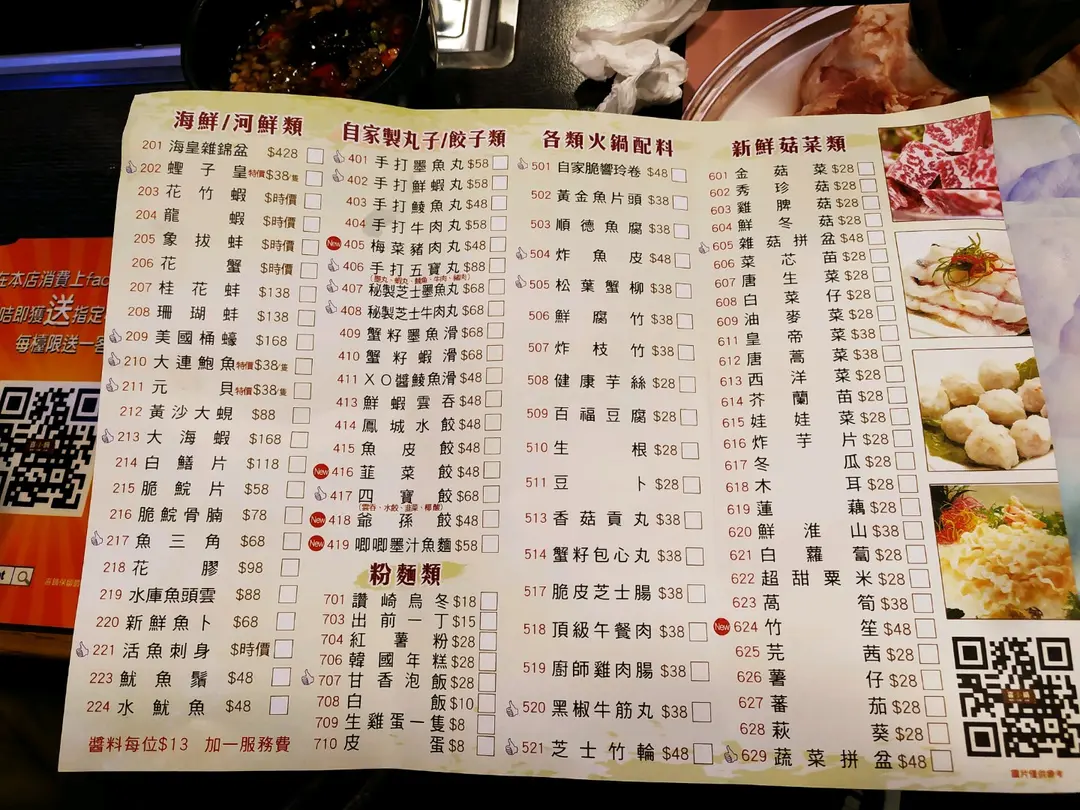 海鮮/河鮮類
201 海皇雜錦盆 $428
202 蟶子皇 特價$38/隻
203 花竹蝦 $時價
204 龍蝦 $時價
205 象拔蚌 $時價
206 花蟹 $時價
207 桂花蚌 $138
208 珊瑚蚌 $138
209 美國桶蠔 $168
210 大連鮑魚 特價$38/隻
211 元貝 特價$38/隻
212 黃沙大蜆 $88
213 大海蝦 $168
214 白鱔片 $118
215 脆鯇片 $58
216 脆鯇骨腩 $78
217 魚三角 $68
218 花膠 $98
219 水庫魚頭雲 $88
220 新鮮魚卜 $68
221 活魚刺身 $時價
223 魷魚鬚 $48
224 水魷魚 $48
醬料每位$13 加一服務費
自家製丸子/餃子類
401 手打墨魚丸 $58
402 手打鮮蝦丸 $58
403 手打鯪魚丸 $48
404 手打牛肉丸 $58
New 405 梅菜豬肉丸 $48
406 手打五寶丸 $88
407 秘製芝士墨魚丸 $68
408 秘製芝士牛肉丸 $68
409 蟹籽墨魚滑 $68
410 蟹籽蝦滑 $68
411 XO醬鯪魚滑 $48
413 鮮蝦雲吞 $48
414 鳳城水餃 $48
415 魚皮餃 $48
New 416 韮菜餃 $48
417 四寶餃 $68
New 418 爺孫餃 $48
New 419 唧唧墨汁魚麵 $58
粉麵類
701 讚崎烏冬 $18
703 出前一丁 $15
704 紅薯粉 $28
706 韓國年糕 $28
707 甘香泡飯 $28
708 白飯 $10
709 生雞蛋一隻 $8
710 皮蛋 $8
各類火鍋配料
501 自家脆響玲卷 $48
502 黃金魚片頭 $38
503 順德魚腐 $38
504 炸魚皮 $48
505 松葉蟹柳 $38
506 鮮腐竹 $38
507 炸枝竹 $38
508 健康芋絲 $28
509 百福豆腐 $28
510 生根 $28
511 豆卜 $28
513 香菇貢丸 $38
514 蟹籽包心丸 $38
517 脆皮芝士腸 $38
518 頂級午餐肉 $38
519 廚師雞肉腸 $38
520 黑椒牛筋丸 $38
521 芝士竹輪 $48
新鮮菇菜類
601 金菇菜 $28
602 秀珍菇 $28
603 雞脾菇 $28
604 鮮冬菇 $28
605 雜菇拼盆 $48
606 菜芯苗 $28
607 唐生菜 $28
608 白菜仔 $28
609 油麥菜 $28
611 皇帝菜 $38
612 唐蒿菜 $38
613 西洋菜 $28
614 芥蘭苗 $28
615 娃娃菜 $28
616 炸芋片 $28
617 冬瓜 $28
618 木耳 $28
619 蓮藕 $28
620 鮮淮山 $38
621 白蘿蔔 $28
622 超甜粟米 $28
623 萵筍 $38
New 624 竹笙 $48
625 芫茜 $28
626 薯仔 $28
627 蕃茄 $28
628 菾葵 $28
629 蔬菜拼盆 $48
圖片僅供參考
在本店消費上fac
咭即獲送指定
每檯限送一客